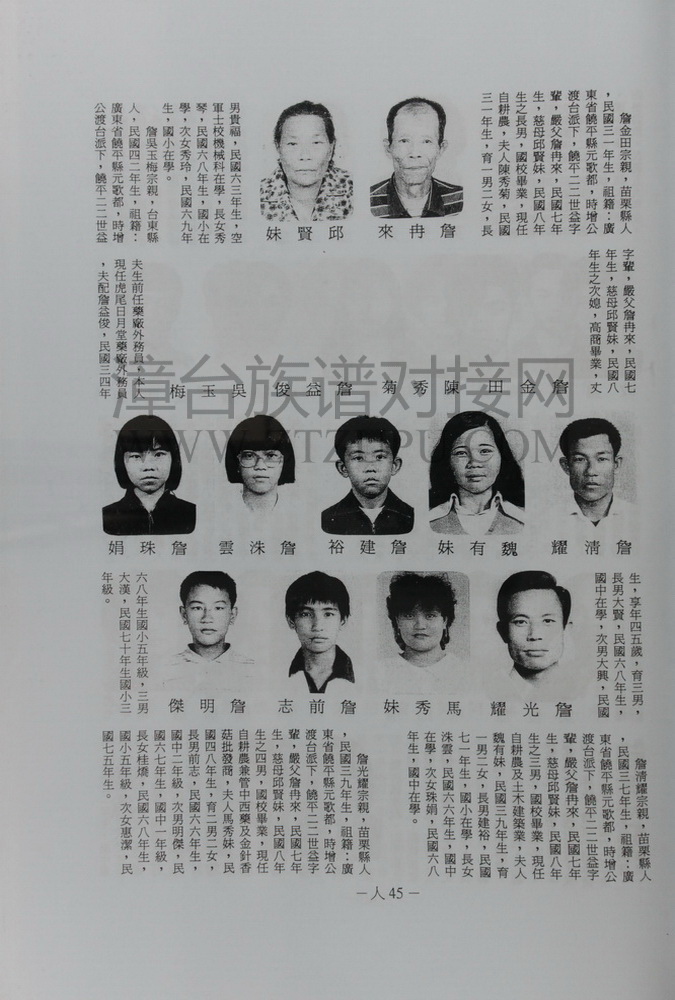 詹金田宗親，苗栗縣人
，民國三一年生，祖籍：廣
東省饒平縣元歌都，時增公
渡台派下，饒平二二世益字
輩，嚴父詹冉來，民國七年
生，慈母邱賢妹，民國八年
生之長男，國校畢業，現任
自耕農，夫人陳秀菊，民國
三一年生，育一男二女，長
詹冉來
邱賢妹
男貴福，民國六三年生，空
軍士校機械科在學，長女秀
琴，民國六八年生，國小在
學，次女秀玲，民國六九年
生，國小在學。
詹吳玉梅宗親，台東縣
人，民國四二年生，祖籍：
廣東省饒平縣元歌都，時增
公渡台派下，饒平二二世益
字輩，嚴父詹冉來，民國七
年生，慈母邱賢妹，民國八
年生之次媳，高商畢業，丈
夫生前任藥廠外務員，本人
現任虎尾日月堂藥廠外務員
，夫配詹益俊，民國三四年
詹金田
陳秀菊
詹益俊
吳玉梅
漳台族谱对接网
WWW.ZTZUPU.COM
詹清耀
魏有妹
詹建裕
詹洙雲
詹珠娟
生，享年四五歲，育三男，
長男大賢，民國六八年生，
國中在學，次男大興，民國
六八年生國小五年級，三男
大漢，民國七十年生國小三
年級。
詹光耀
馬秀妹
詹前志
詹明傑
詹清耀宗親，苗栗縣人
，民國三七年生，祖籍：廣
東省饒平縣元歌都，時增公
渡台派下，饒平二二世益字
輩，嚴父詹冉來，民國七年
生，慈母邱賢妹，民國八年
生之三男，國校畢業，現任
自耕農及土木建築業，夫人
魏有妹，民國三九年生，育
一男二女，長男建裕，民國
七一年生，國小在學，長女
洙雲，民國六六年生，國中
在學，次女珠娟，民國六八
年生，國中在學。
詹光耀宗親，苗栗縣人
，民國三九年生，祖籍：廣
東省饒平縣元歌都，時增公
渡台派下，饒平二二世益字
輩，嚴父詹冉來，民國七年
生，慈母邱賢妹，民國八年
生之四男，國校畢業，現任
自耕農兼管中西藥及金針香
菇批發商，夫人馬秀妹，民
國四八年生，育二男二女，
長男前志，民國六六年生，
國中二年級，次男明傑，民
國六七年生，國中一年級，
長女桂嬌，民國六八年生，
國小五年級，次女惠潔，民
國七五年生。
－人45－